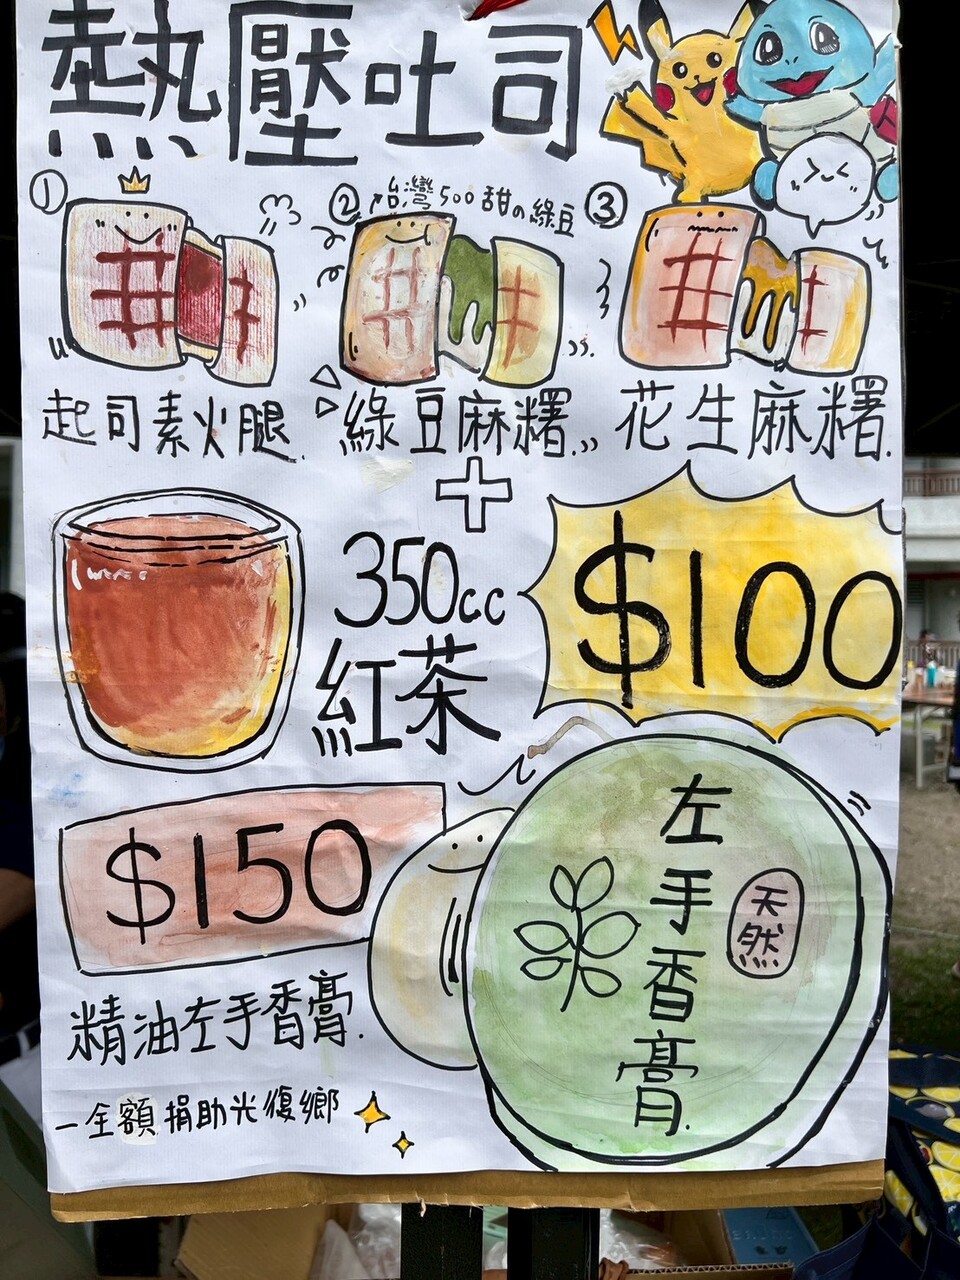 熱壓吐司
① ② 台灣500甜の綠豆 ③
起司素火腿. 綠豆麻糬 花生麻糬.
+
350cc
紅茶
$100
$150
精油左手香膏.
—全額捐助光復鄉
左手香膏.
天然